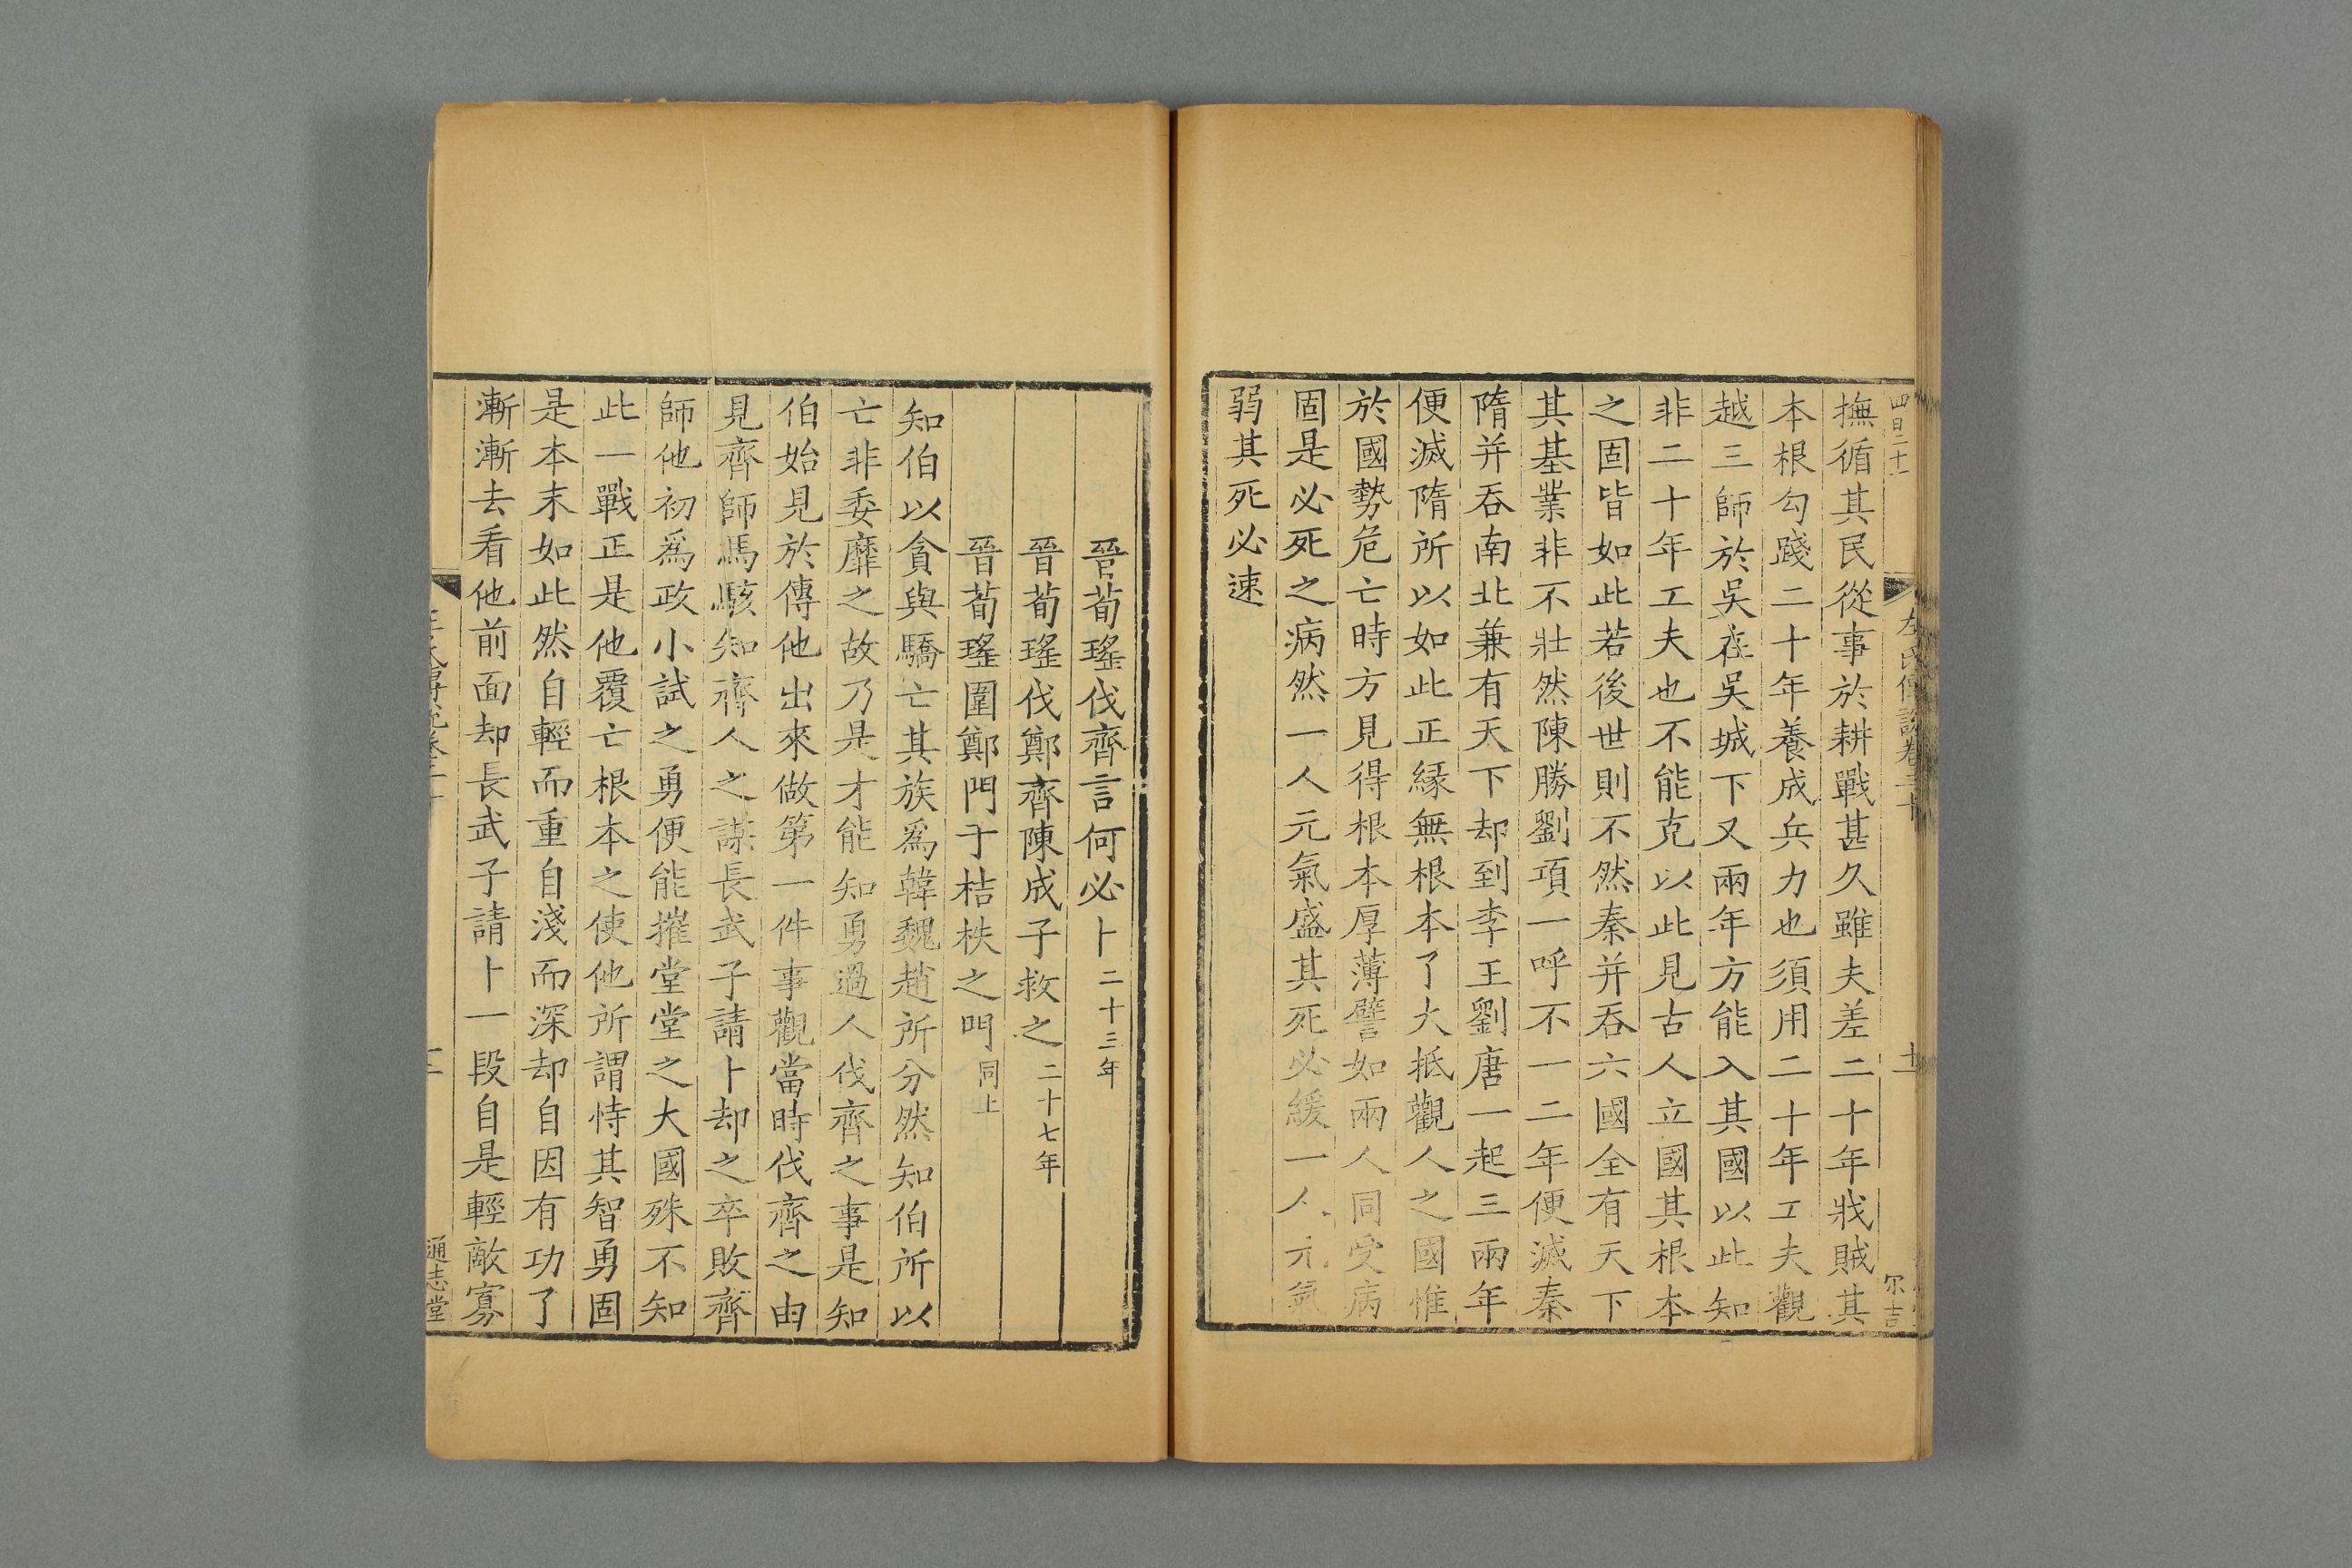 四百二十一
左氏傳說卷二十
十一
尔吉
撫循其民從事於耕戰甚久雖夫差二十年戕賊其
本根勾踐二十年養成兵力也須用二十年工夫觀
越三師於吳在吳城下又兩年方能入其國以此知
非二十年工夫也不能克以此見古人立國其根本
之固皆如此若後世則不然秦并吞六國全有天下
其基業非不壯然陳勝劉項一呼不一二年便滅秦
隋并吞南北兼有天下却到李王劉唐一起三兩年
便滅隋所以如此正緣無根本了大抵觀人之國惟
於國勢危亡時方見得根本厚薄譬如兩人同受病
固是必死之病然一人元氣盛其死必緩一人元氣
弱其死必速
晉荀瑤伐齊言何必卜二十三年
晉荀瑤伐鄭齊陳成子救之二十七年
晉荀瑤圍鄭門于桔柣之門同上
知伯以貪與驕亡其族爲韓魏趙所分然知伯所以
亡非委靡之故乃是才能知勇過人伐齊之事是知
伯始見於傳他出來做第一件事觀當時伐齊之由
見齊師馬駭知齊人之謀長武子請卜却之卒敗齊
師他初爲政小試之勇便能摧堂堂之大國殊不知
此一戰正是他覆亡根本之使他所謂恃其智勇固
是本末如此然自輕而重自淺而深却自因有功了
漸漸去看他前面却長武子請卜一段自是輕敵寡
通志堂